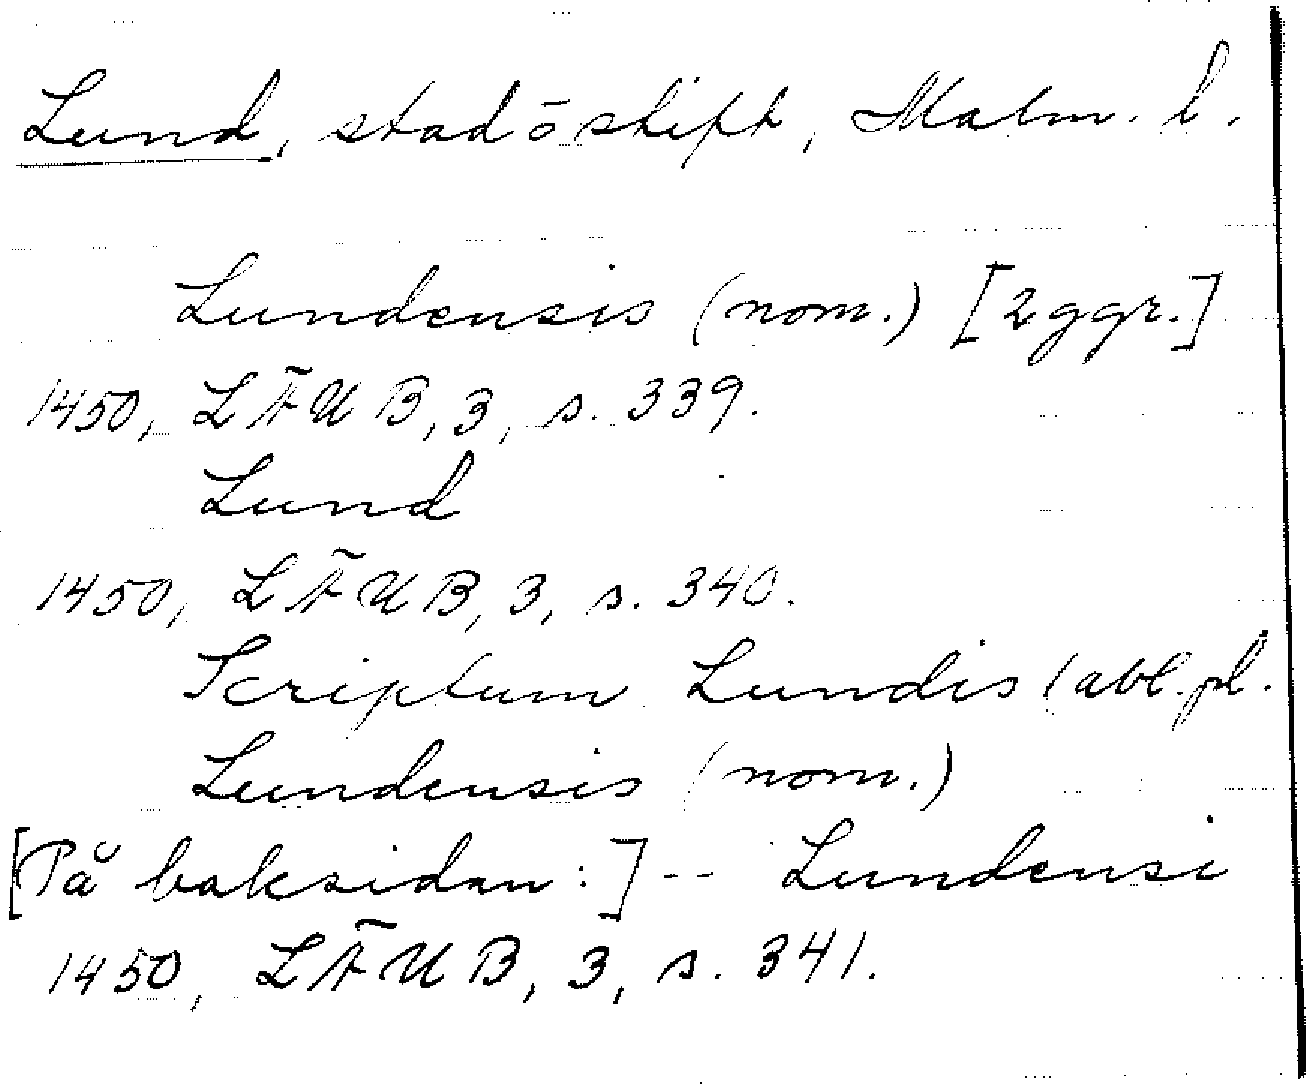 Lund, stad ō stift, Malm. l.
Lundensis (nom.) [2 ggr.]
1450, LÄUB, 3, s. 339.
Lund
1450, LÄUB, 3, s. 340.
Scriptum Lundis (abl. pl.
Lundensis (nom.)
[På baksidan:] -- Lundensi
1450, LÄUB, 3, s. 341.